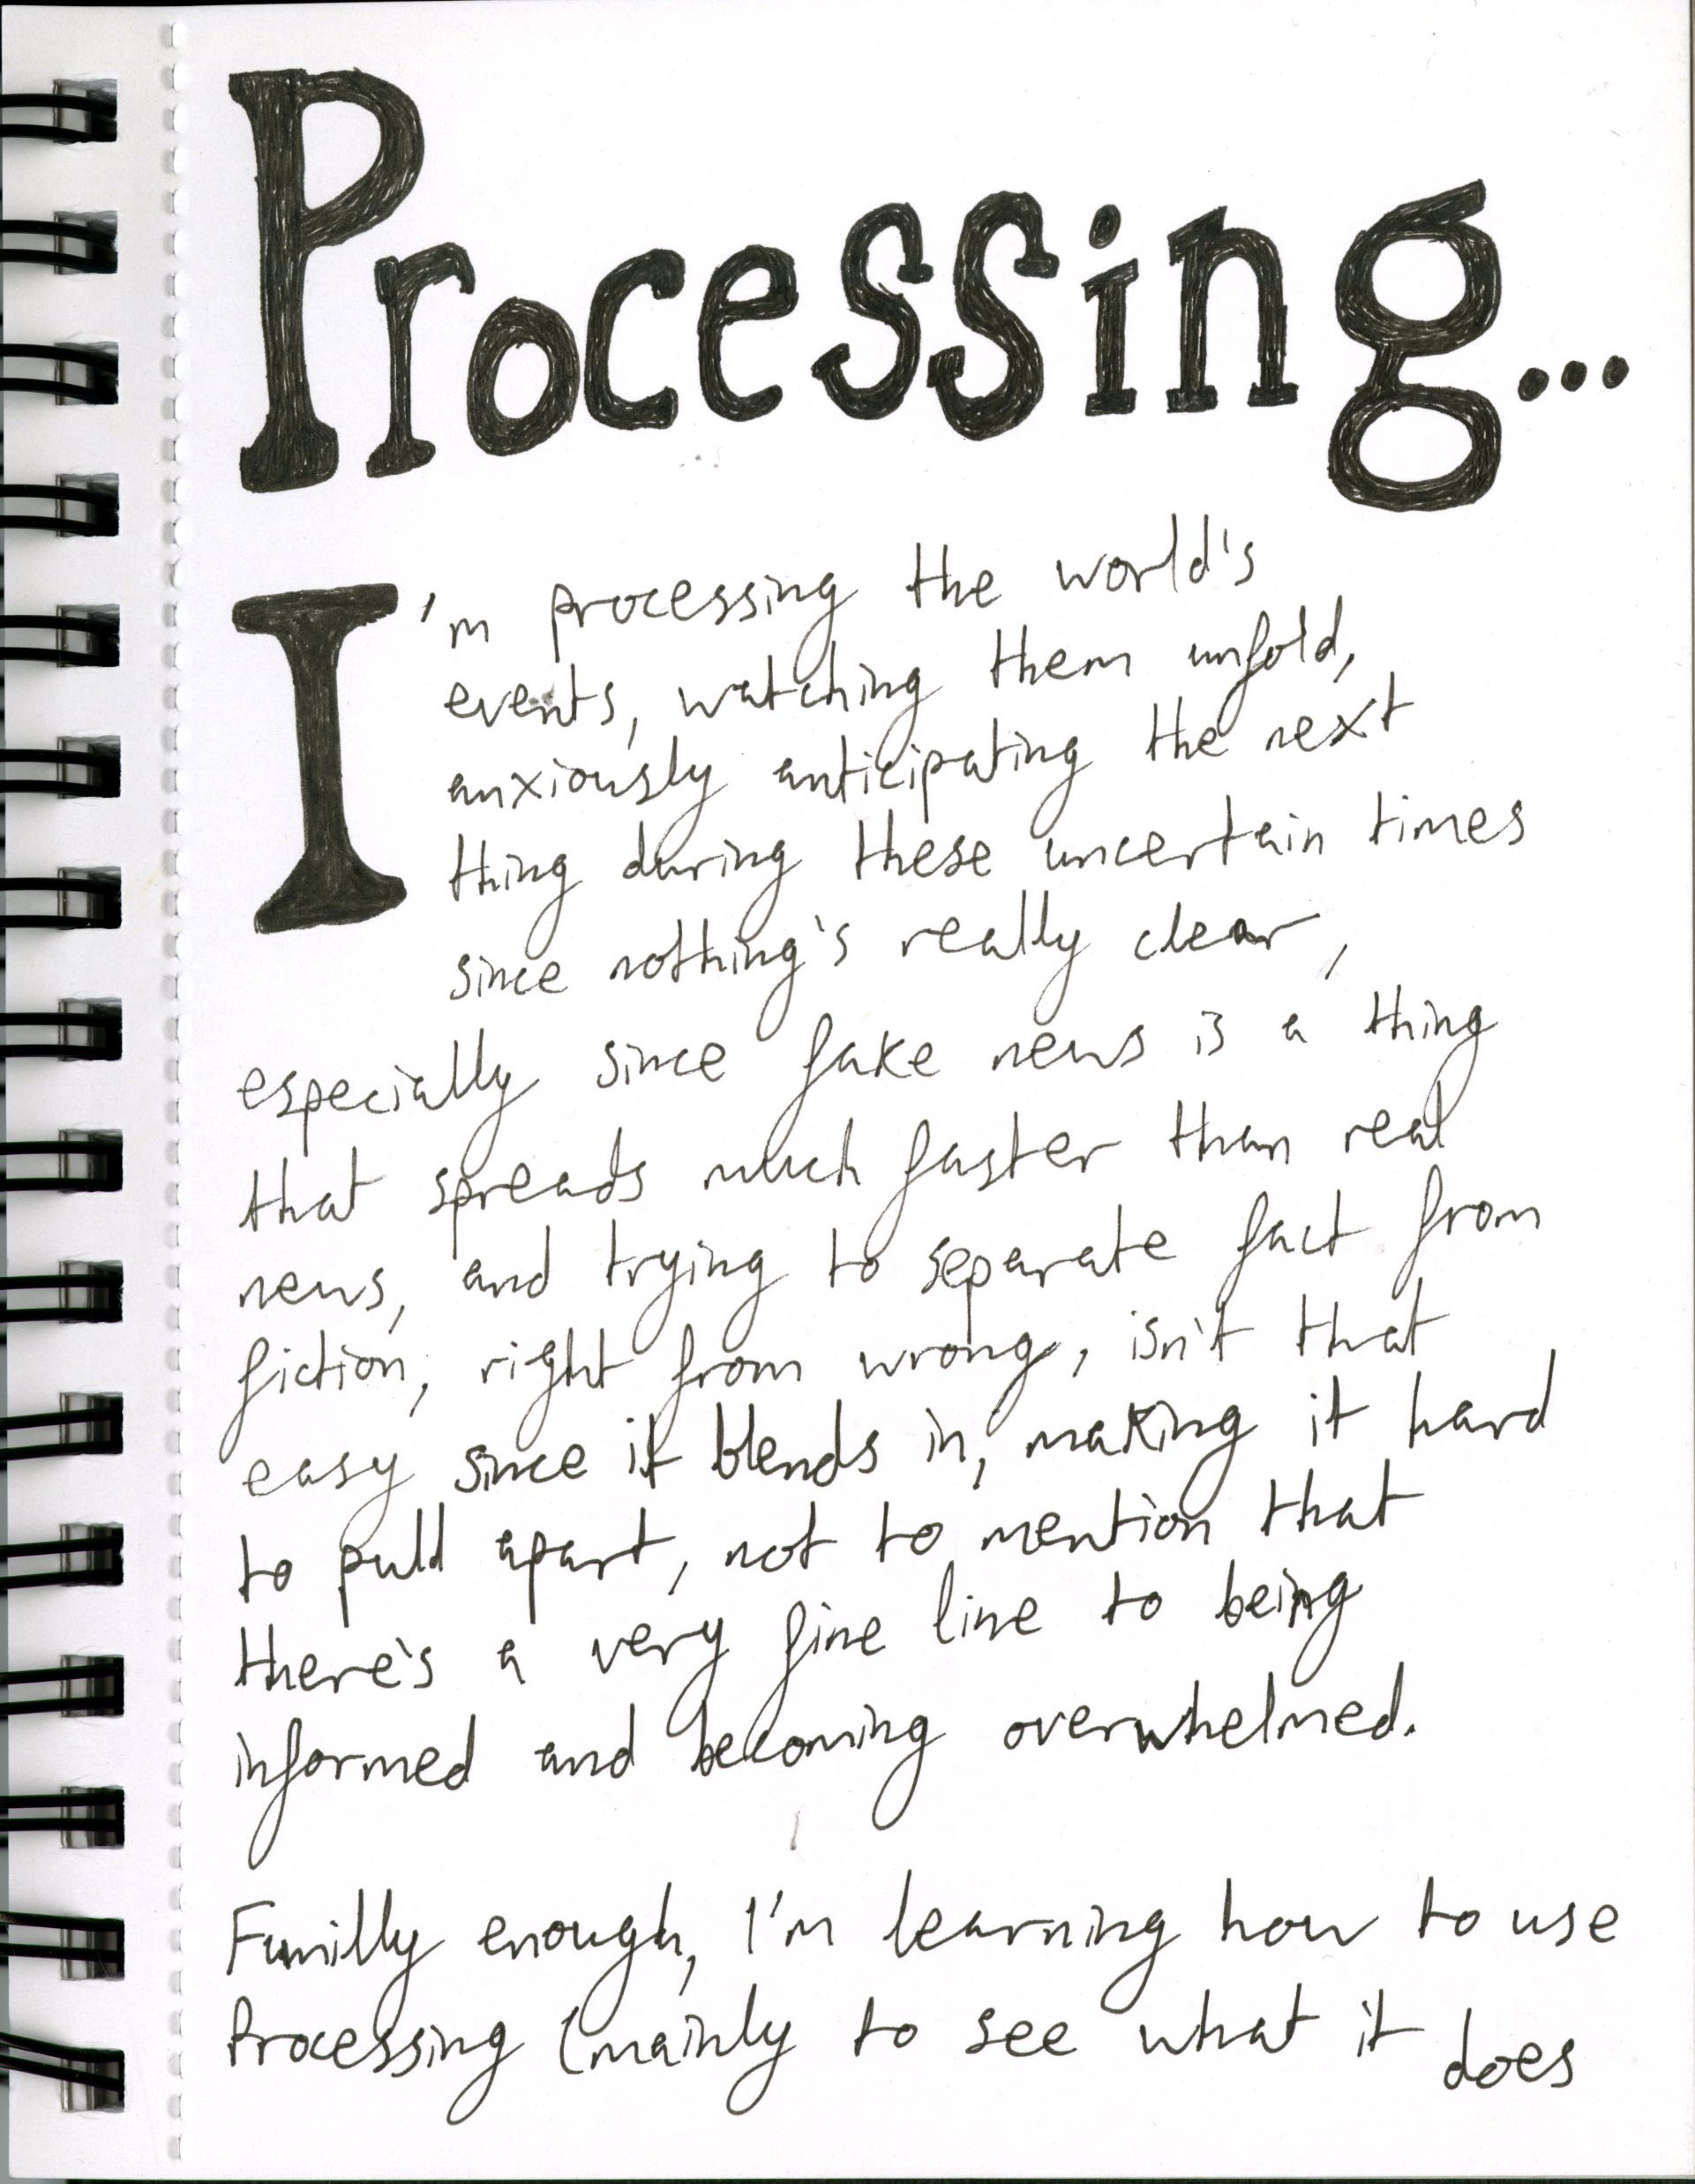 Processing...
I'm processing the world's
events, watching them unfold,
anxiously anticipating the next
thing during these uncertain times
since nothing's really clear,
especially since fake news is a thing
that spreads much faster than real
news, and trying to separate fact from
fiction, right from wrong, isn't that
easy since it blends in, making it hard
to pull apart, not to mention that
there's a very fine line to being
informed and becoming overwhelmed.
Funnilly enough, I'm learning how to use
Processing (mainly to see what it does